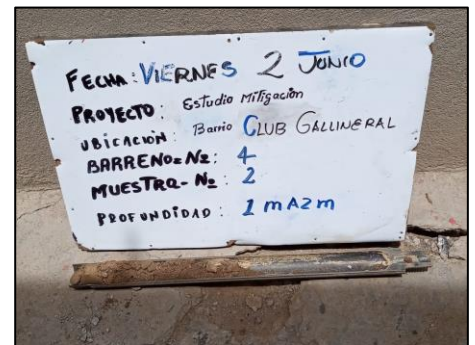 FECHA: VIERNES 2 JUNIO
PROYECTO: Estudio Mitigación
UBICACIÓN: Barrio CLUB GALLINERAL
BARRENO= Nº: 4
MUESTRA- Nº: 2
PROFUNDIDAD: 1 m A 2 m